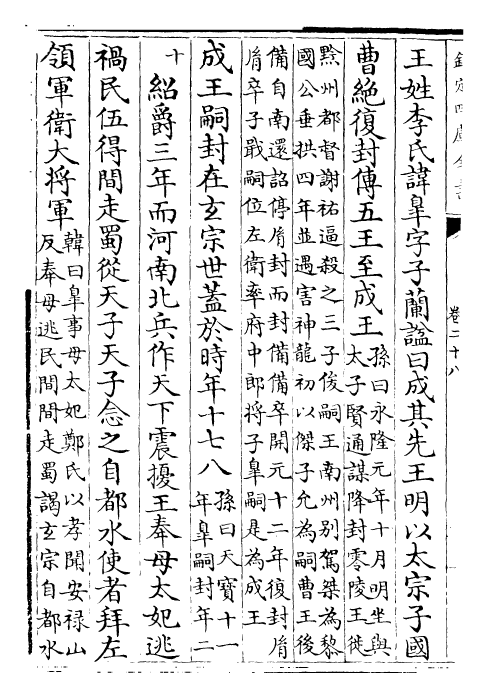 欽定四庫全書
卷二十八
王姓李氏諱臯字子蘭謚曰成其先王明以太宗子國
曹絶復封傳五王至成王
孫曰永隆元年十月明坐與
太子賢通謀降封零陵王徙
黔州都督謝祐逼殺之三子俊嗣王南州别駕桀為黎
國公垂拱四年並遇害神龍初以傑子允為嗣曹王後
備自南還詔停胤封而封備備卒開元十二年復封胤
胤卒子戢嗣位左衛率府中郎將子臯嗣是為成王
成王嗣封在玄宗世蓋於時年十七八
孫曰天寶十一
年臯嗣封年二
十
紹爵三年而河南北兵作天下震擾王奉母太妃逃
禍民伍得間走蜀從天子天子念之自都水使者拜左
領軍衛大將軍
韓曰臯事母太妃鄭氏以孝聞安禄山
反奉母逃民間間走蜀謁玄宗自都水